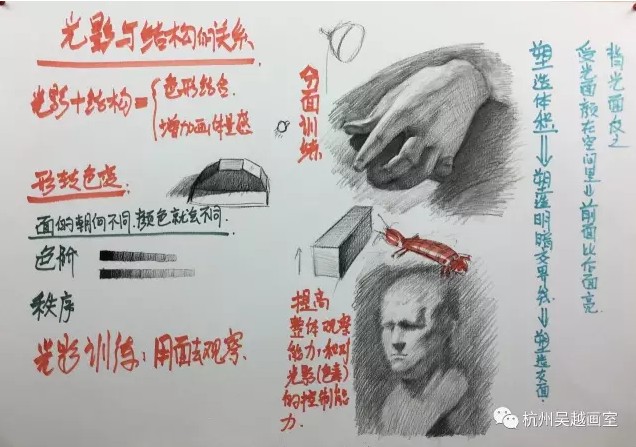 光影与结构的关系
光影+结构=
色形结合.
增加画体量感
形转色度:
面的朝向不同.颜色就会不同.
色阶
秩序
光影训练:用面去观察.
分面训练
提高
整体观察
能力,和对
光影(色素)
的控制能
力.
塑造体积⇒塑造明暗交界线⇒塑造灰面.
受光面放在空间里⇒前面比后面亮.
背光面反之
杭州吴越画室